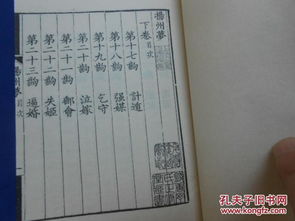 揚州夢
下卷目次
第十七齣 計遣
第十八齣 强媒
第十九齣 乞守
第二十齣 泣嫁
第二十一齣 御會
第二十二齣 失姬
第二十三齣 逼婚
揚州夢 目次
孔夫子旧书网